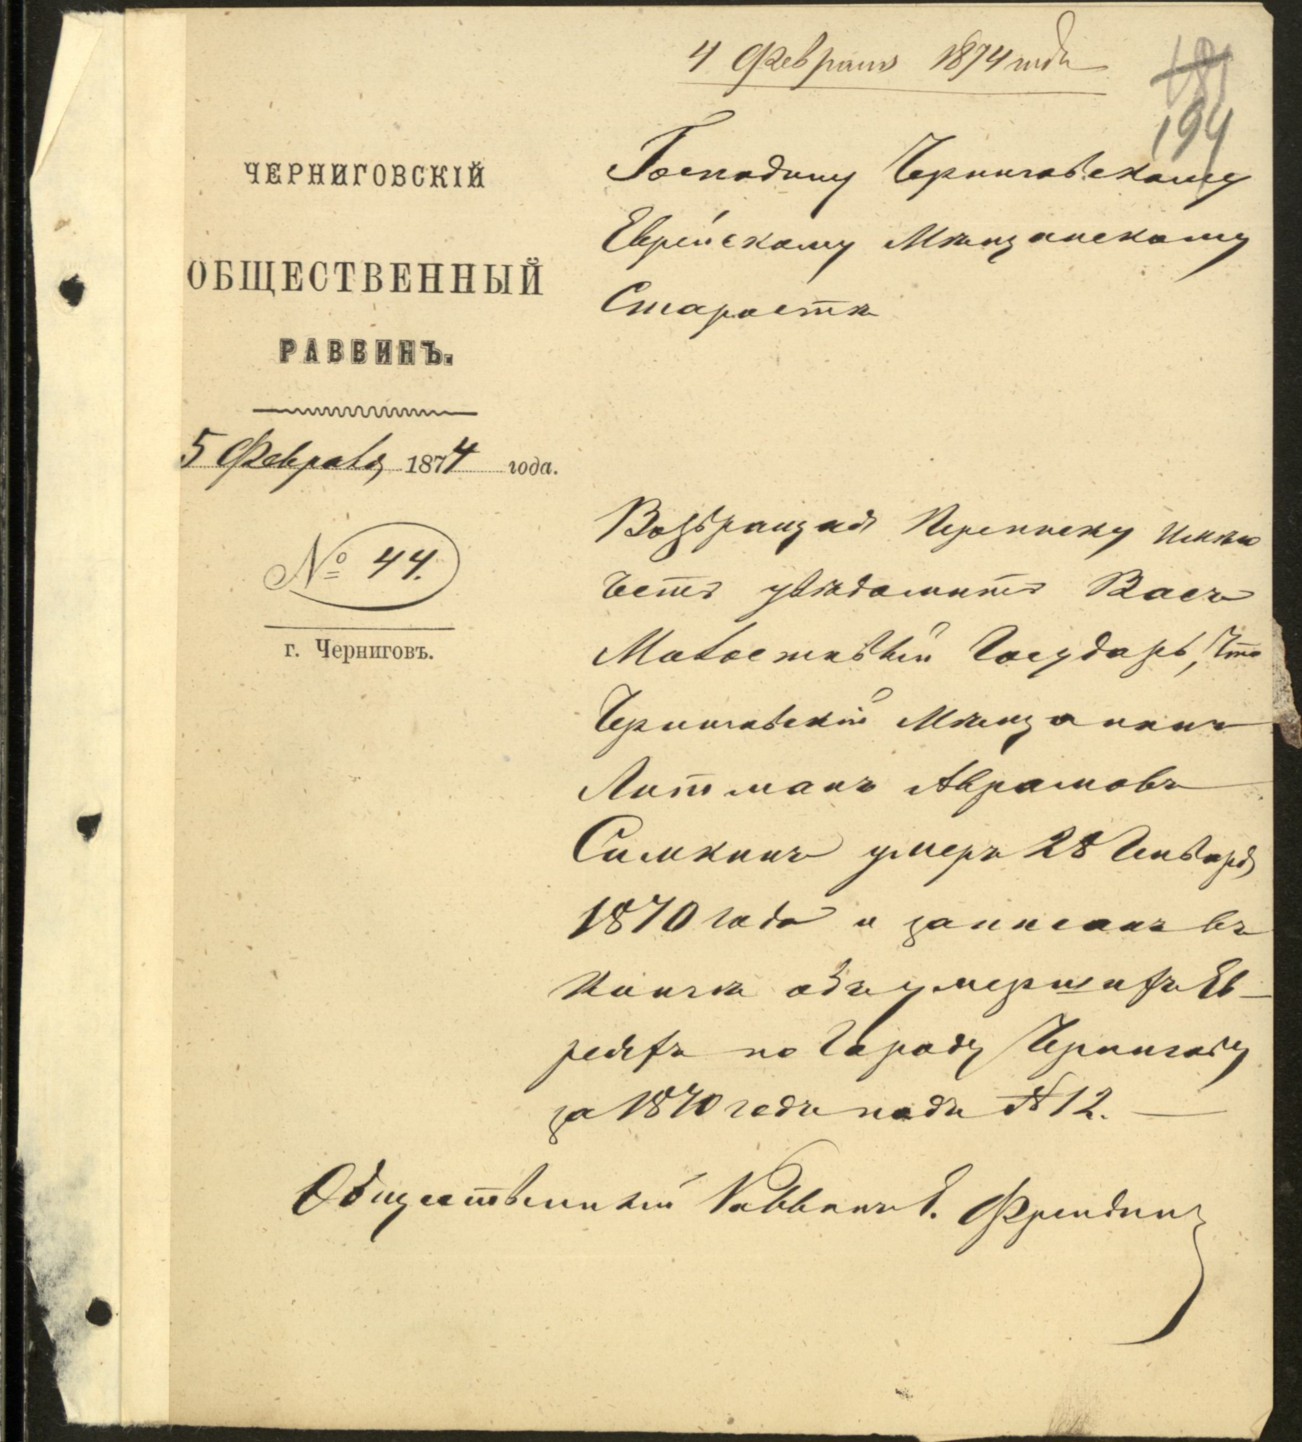 4 Февраля 1874 года
181
194
ЧЕРНИГОВСКІЙ
ОБЩЕСТВЕННЫЙ
РАВВИНЪ.
5 Февраля 1874 года.
№ 44.
г. Черниговъ.
Господину Черниговскому
Еврейскому Мѣщанскому
Старостѣ
Возвращая Переписку имѣю
честь увѣдомить Васъ
Милостивый Государь, что
Черниговскій Мѣщанинъ
Литманъ Аврамовъ
Симкинъ умеръ 28 Генваря
1870 года и записанъ въ
Книгѣ объ умершихъ Ев-
реяхъ по Городу Чернигову
за 1870 годъ подъ № 12. —
Общественный Раввинъ